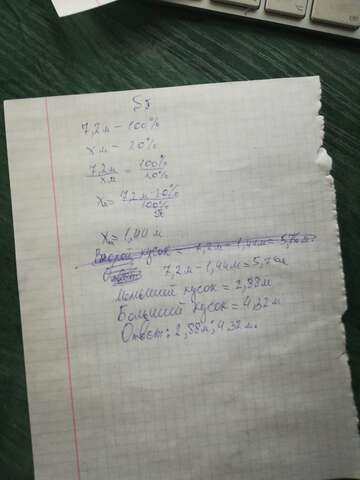 7,2м - 100%
x м - 20%
7,2м / x м = 100% / 20%
x = 7,2м · 20% / 100%
x = 1,44 м
Второй кусок = 7,2м - 1,44м = 5,76м
7,2м - 1,44м = 5,76м
Меньший кусок = 2,88м
Больший кусок = 4,32м
Ответ: 2,88м; 4,32м.